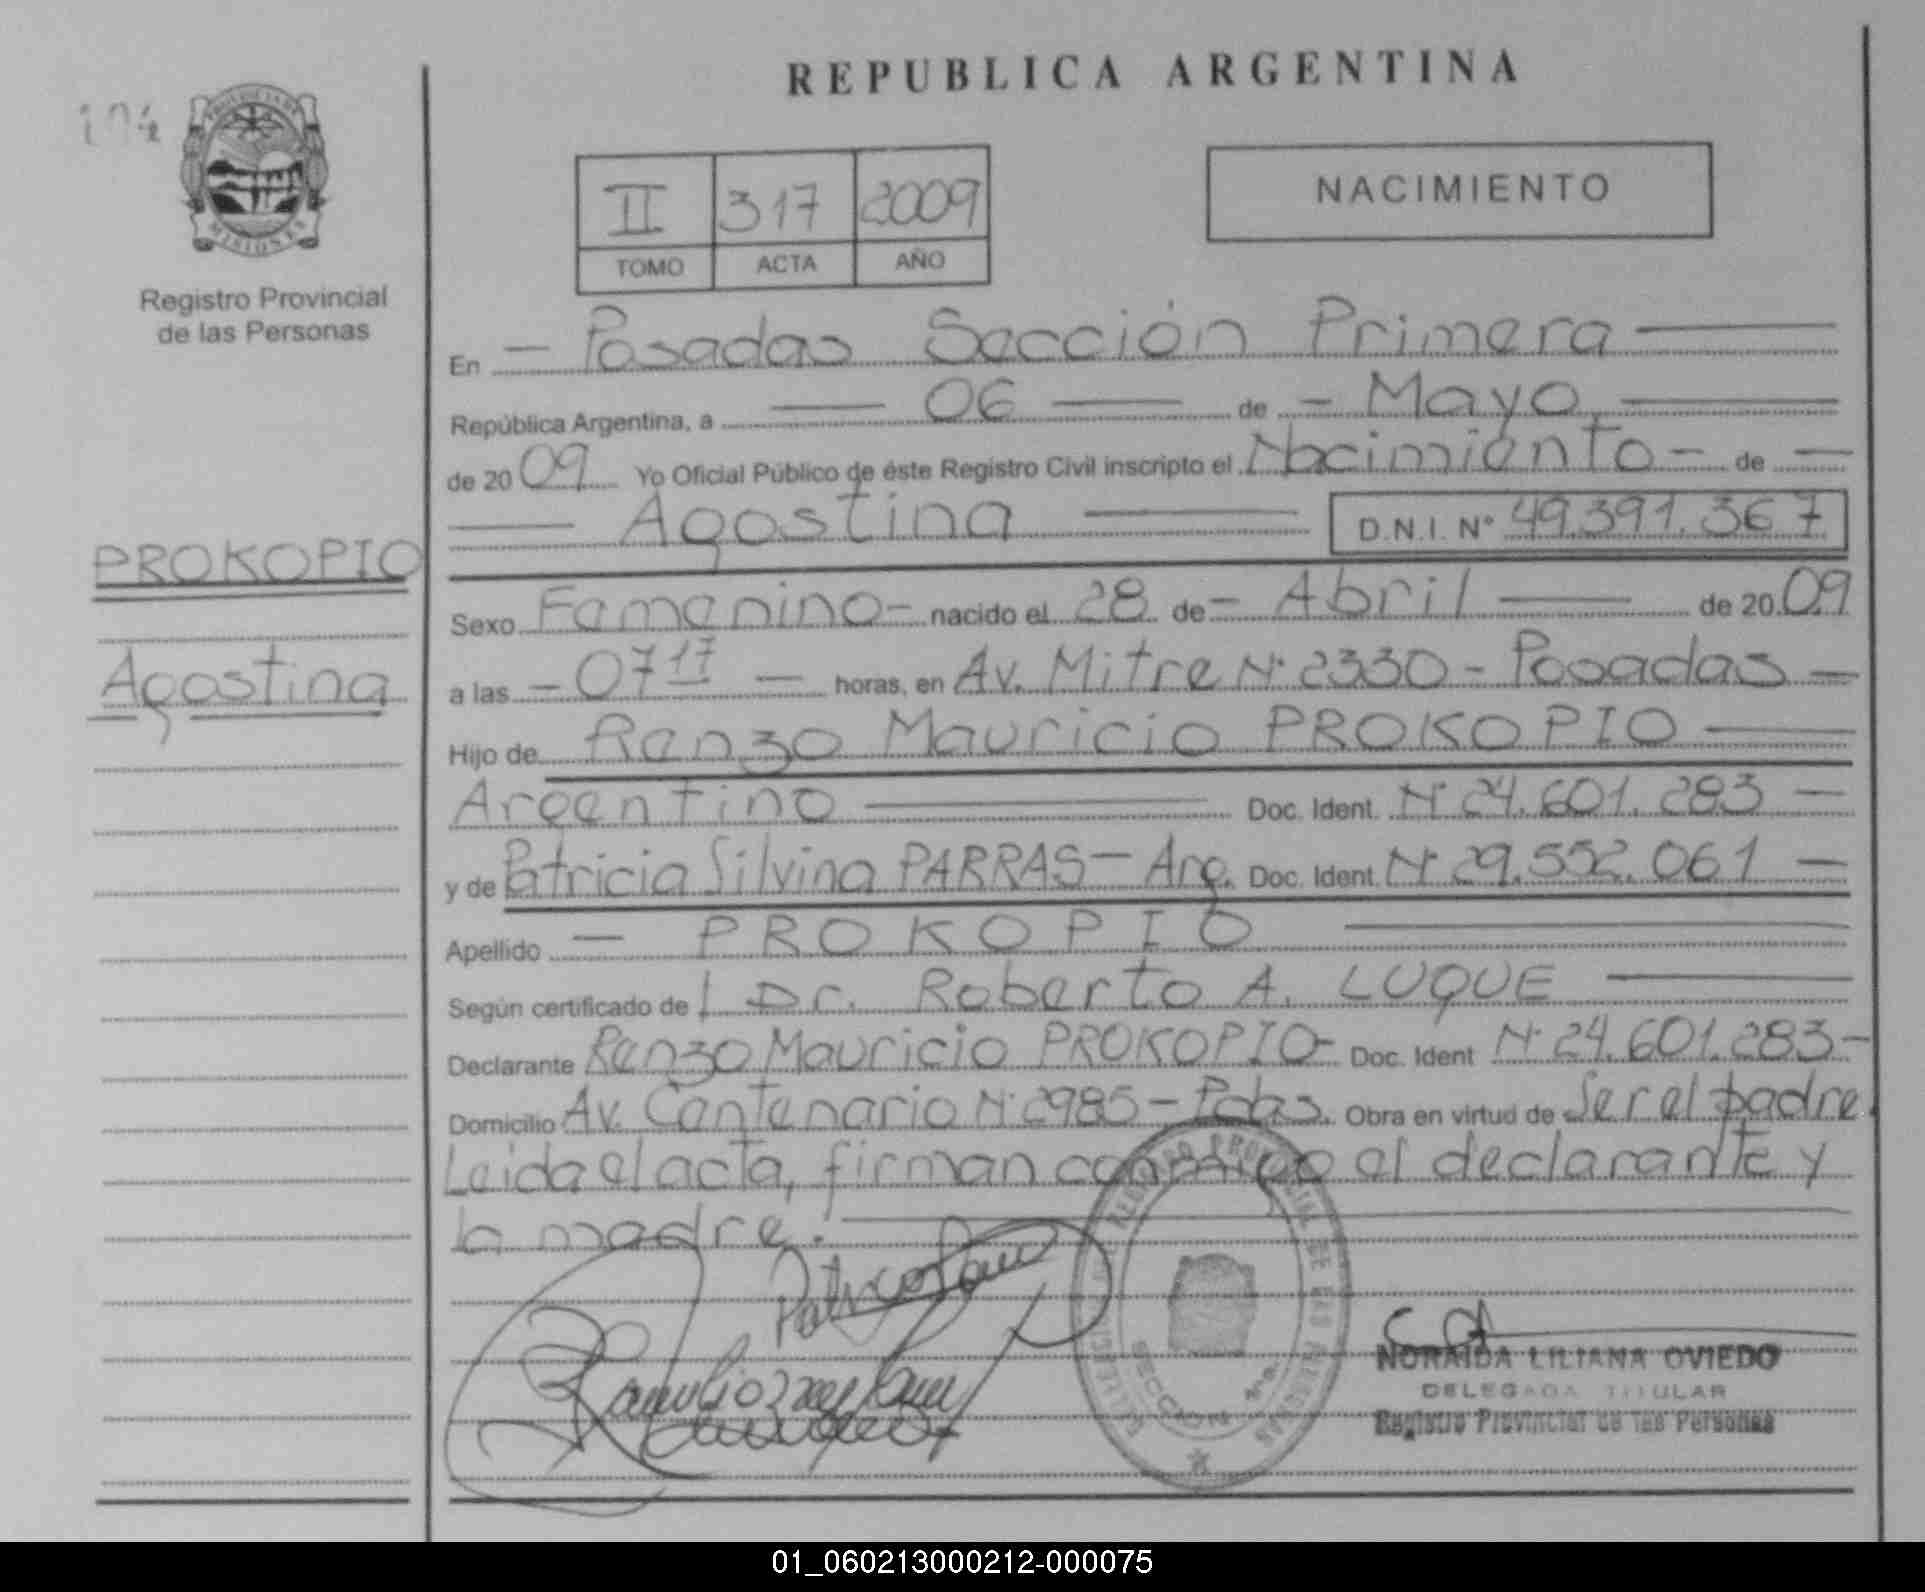 REPUBLICA ARGENTINA
104
PROVINCIA DE
MISIONES
Registro Provincial
de las Personas
II 317 2009
TOMO ACTA AÑO
NACIMIENTO
En - Posadas Sección Primera
República Argentina, a 06 de - Mayo
de 2009 Yo Oficial Público de éste Registro Civil inscripto el Nacimiento - de -
Agostina D.N.I. N° 49.391.367
PROKOPIO
Agostina
Sexo Femenino - nacido el 28 de - Abril de 2009
a las - 07 17 - horas, en Av. Mitre N° 2330 - Posadas -
Hijo de Renzo Mauricio PROKOPIO
Argentino Doc. Ident. N° 24.601.283 -
y de Patricia Silvina PARRAS - Arg. Doc. Ident. N° 29.552.061 -
Apellido - PROKOPIO
Según certificado de Dr. Roberto A. LUQUE
Declarante Renzo Mauricio PROKOPIO - Doc. Ident N° 24.601.283 -
Domicilio Av. Centenario N° 2985 - Pdas. Obra en virtud de Ser el padre.
Leida el acta, firman conmigo el declarante y
la madre.
REGISTRO PROVINCIAL DE LAS PERSONAS
SECCION 1ra.
NORAIDA LILIANA OVIEDO
DELEGADA TITULAR
Registro Provincial de las Personas
01_060213000212-000075